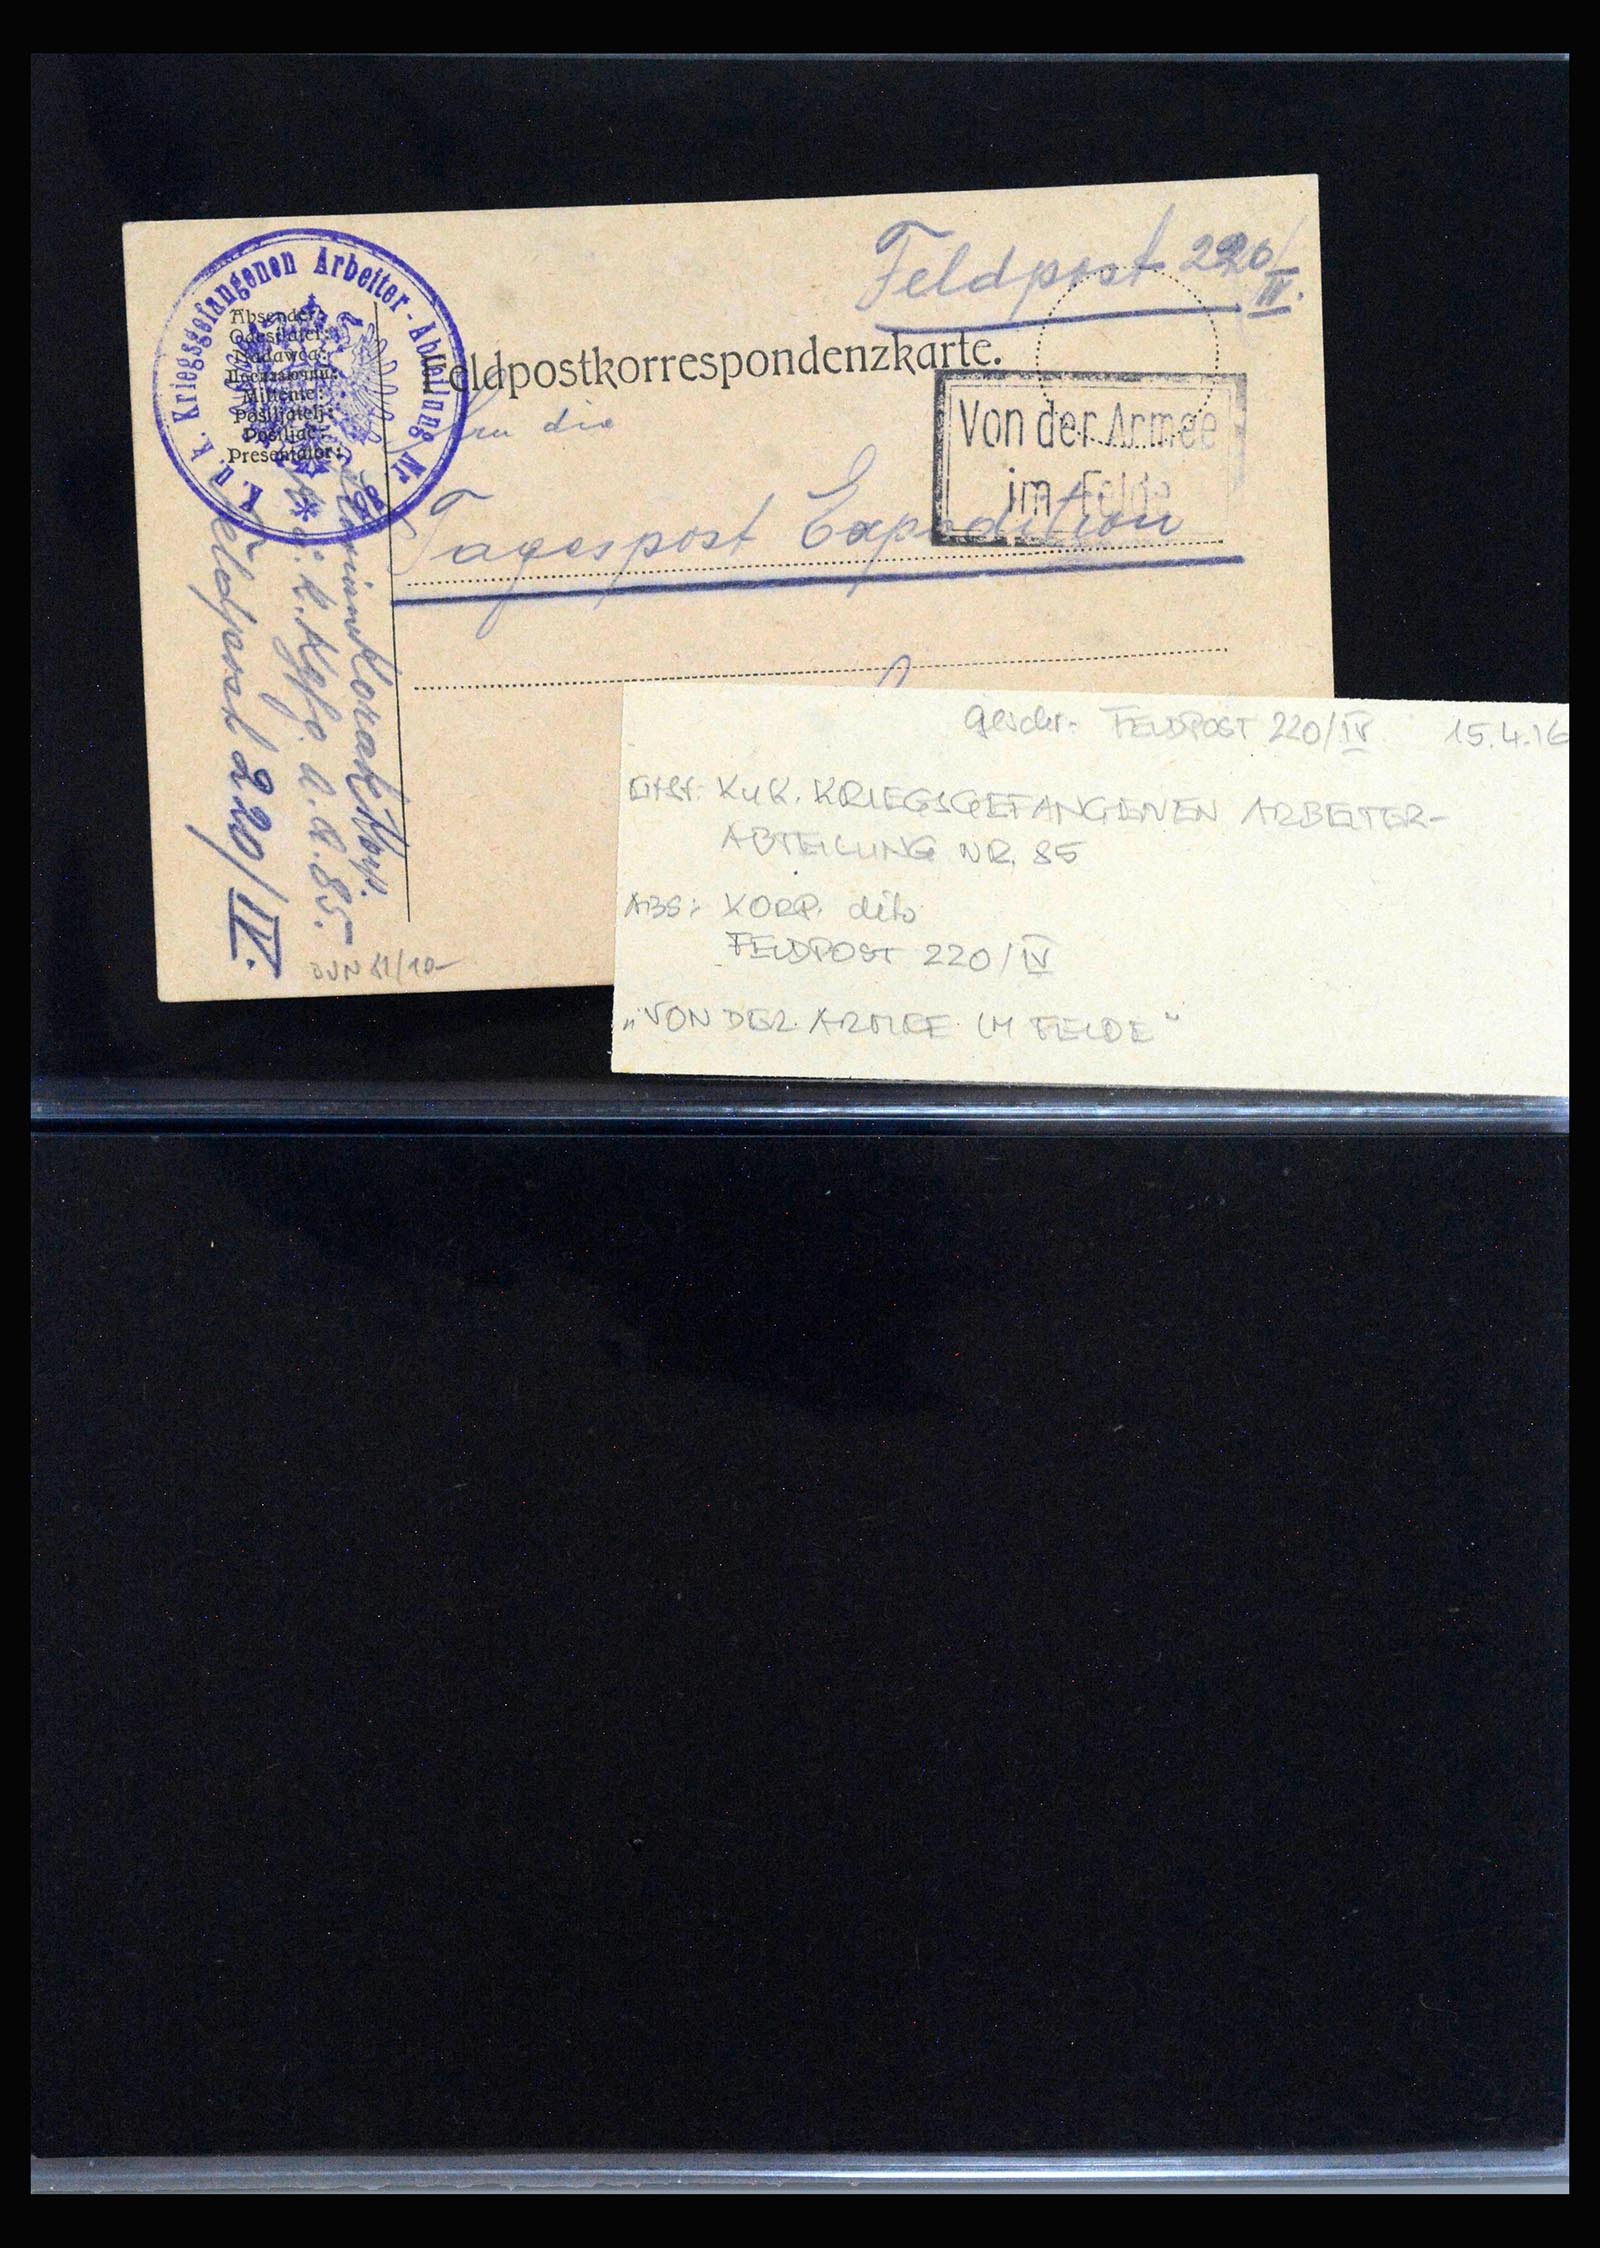 Feldpost 220/IV.
K. u. k. Kriegsgefangenen Arbeiter-Abteilung Nr. 85
Absender:
Odesílatel:
Nadawca:
Mittente:
Pošiljatelj:
Pošiljač:
Presentator:
Feldpostkorrespondenzkarte.
An die
Von der Armee
im Felde
Tagespost Expedition
Korp.
K. u. k. Kgfg. A. A. 85.
Feldpost 220/IV.
DUN 81/10-
geschr. FELDPOST 220/IV 15.4.16
KuK. KRIEGSGEFANGENEN ARBEITER-
ABTEILUNG NR. 85
ABS: KORP. dito
FELDPOST 220/IV
„VON DER ARMEE IM FELDE"